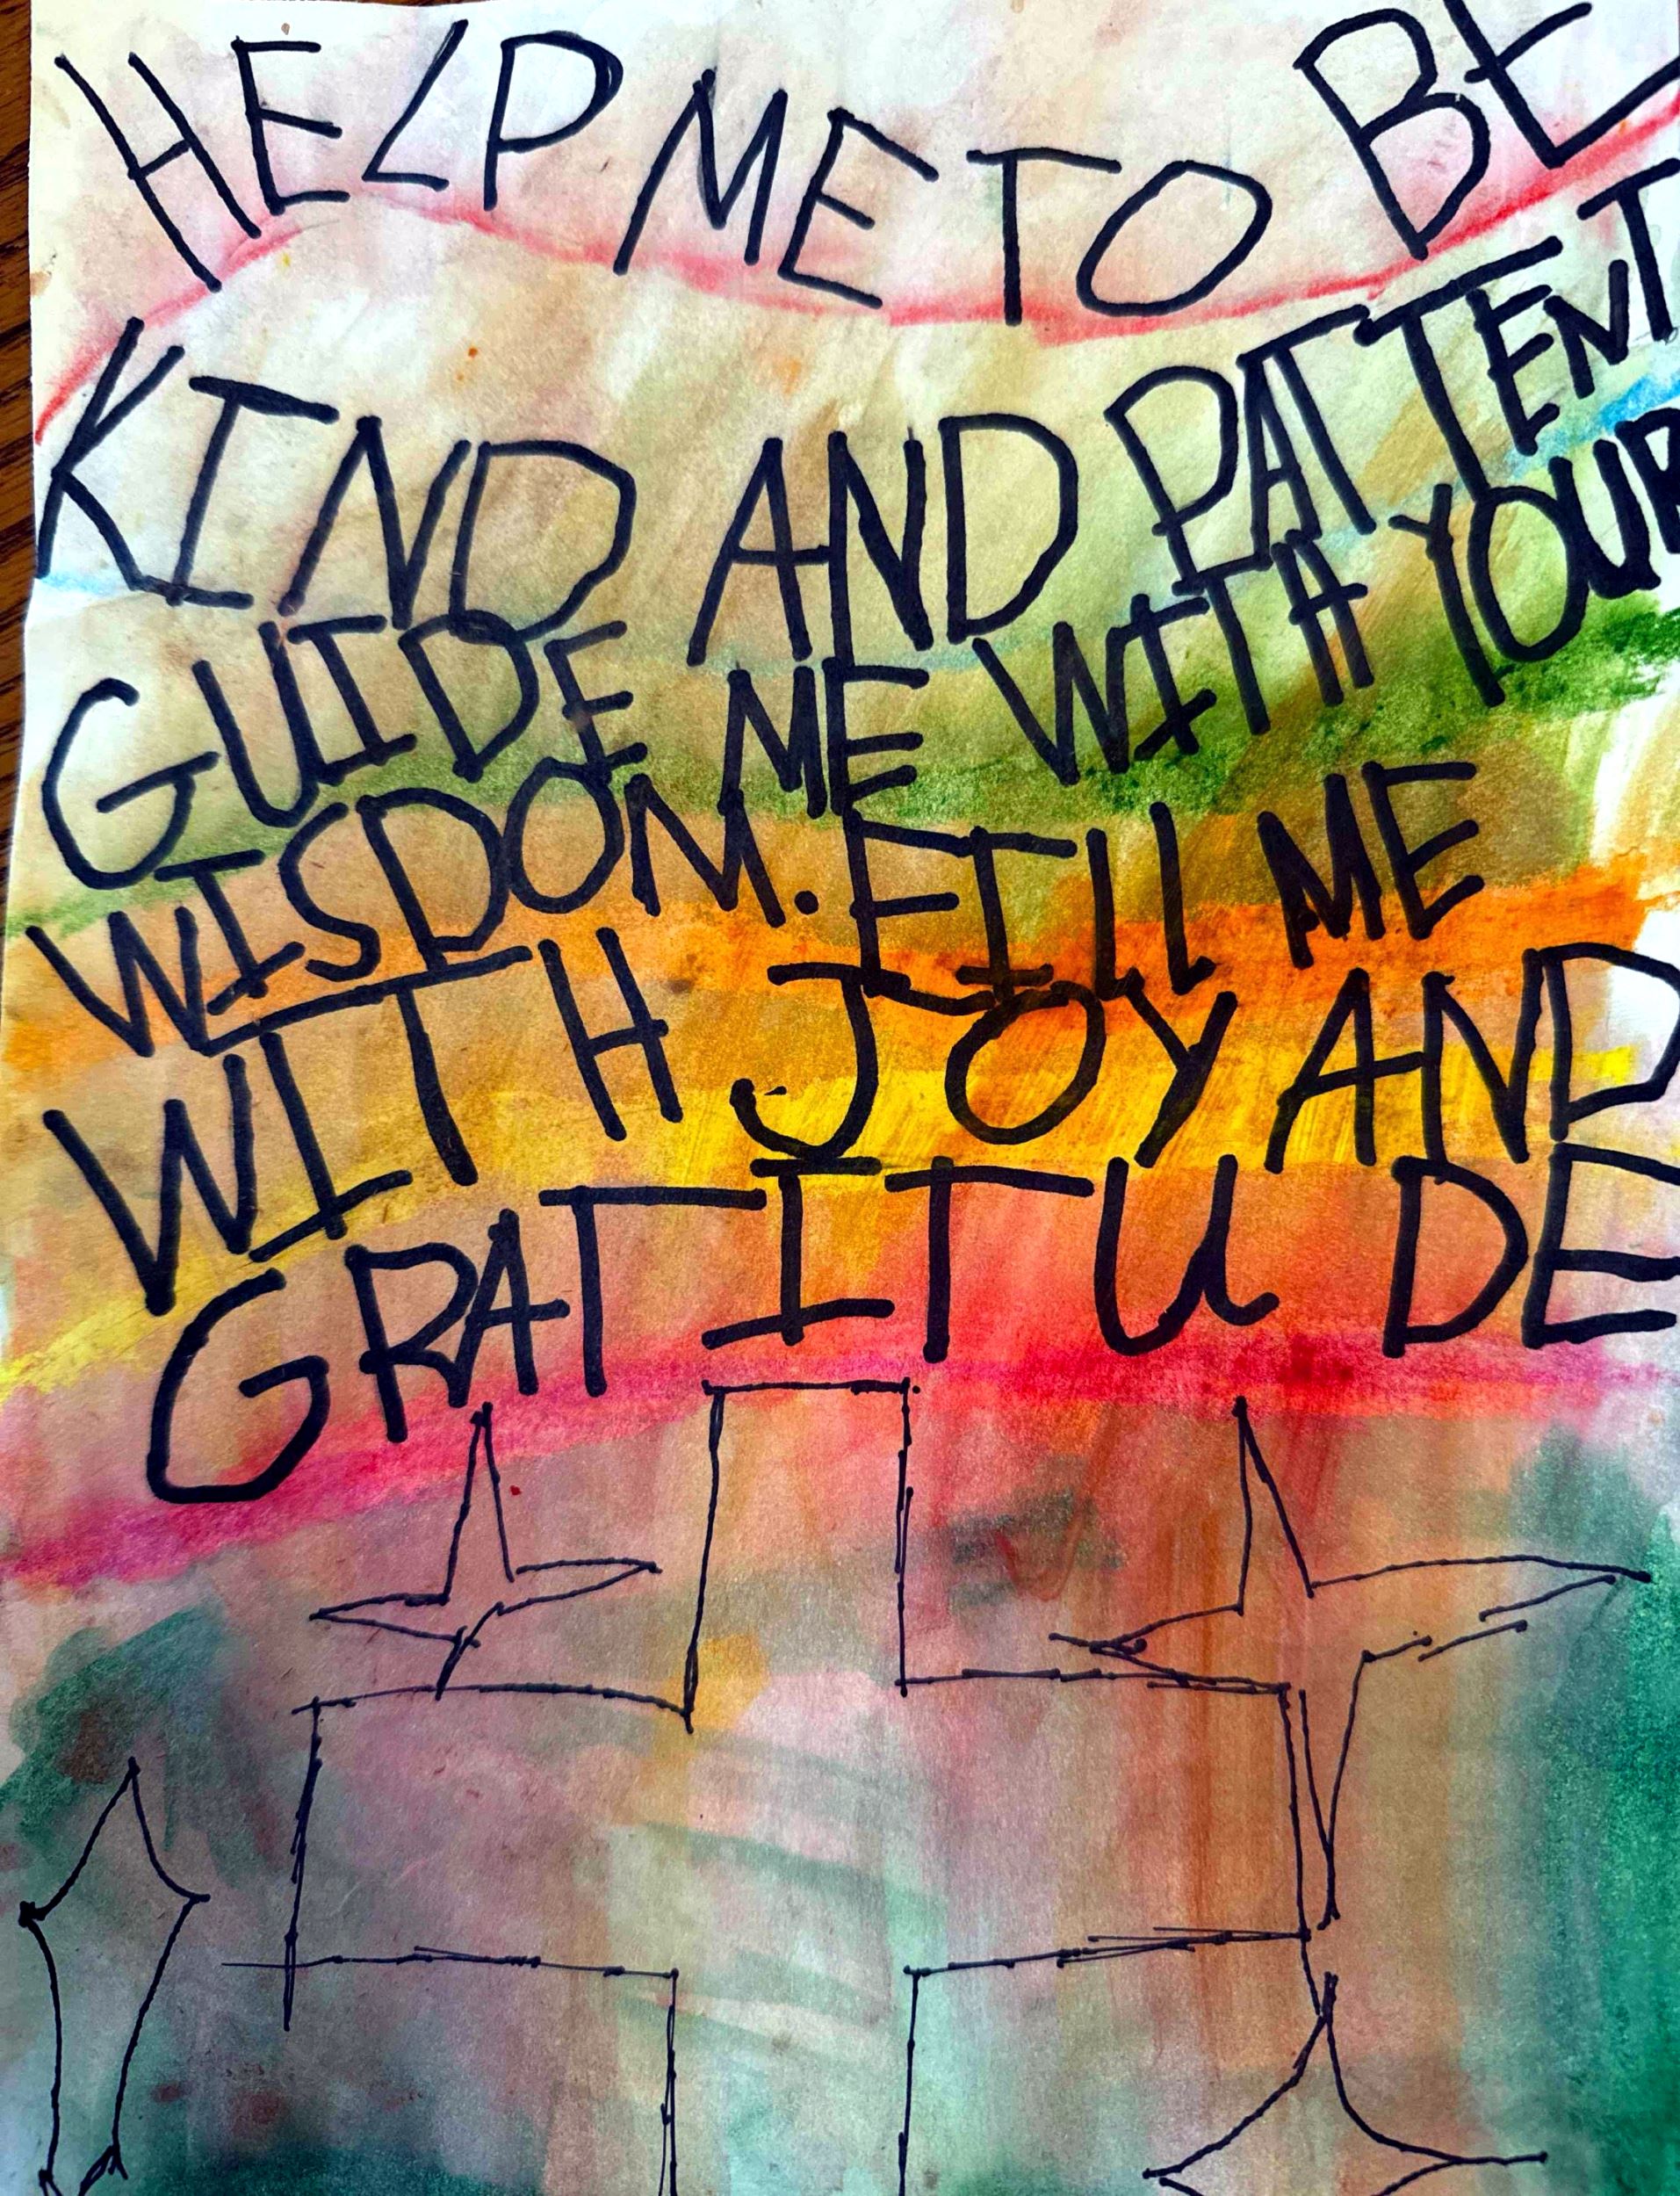 HELP ME TO BE
KIND AND PATIENT
GUIDE ME WITH YOUR
WISDOM. FILL ME
WITH JOY AND
GRATITUDE